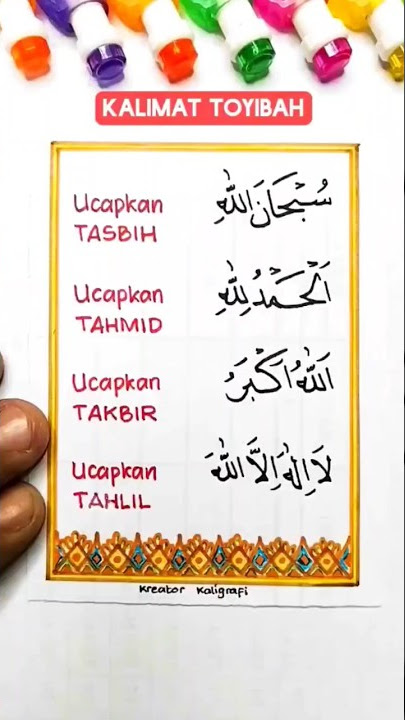 KALIMAT TOYIBAH
Ucapkan
TASBIH
سُبْحَانَ اللّٰهِ
Ucapkan
TAHMID
اَلْحَمْدُ لِلّٰهِ
Ucapkan
TAKBIR
اَللّٰهُ اَكْبَرُ
Ucapkan
TAHLIL
لَا اِلٰهَ اِلَّا اللّٰهَ
Kreator Kaligrafi